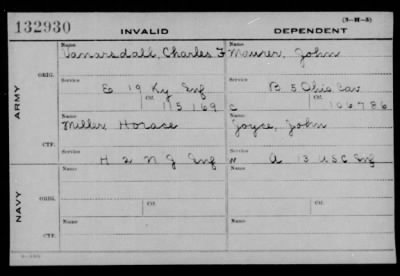 132930 INVALID DEPENDENT (3-H-5)
Name Vanarsdall, Charles F Name Maurer, John
ARMY
ORIG.
Service E 19 Ky Inf Service B 5 Ohio Cav
Ctf. 115169 C Ctf. 106786
Name Miller Horace Name Joyce, John
CTF.
Service H 2 N J Inf Service A 13 U S C Inf
NAVY
Name Name
ORIG. Ctf. Ctf.
Name Name
CTF.